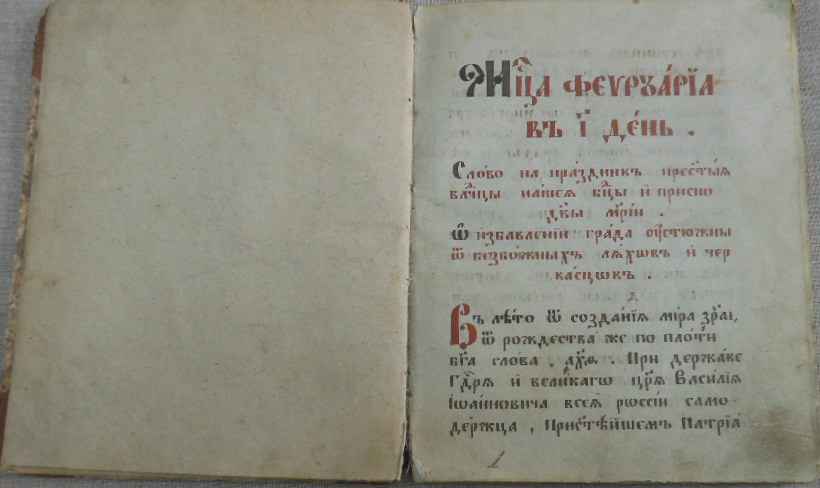 Мⷭ҇ца феврꙋа́рїа
въ і҃ де́нь .
Сло́во на пра́здникъ прест҃ы́я
влⷣчцы на́шея бцⷣы и҆ присно
дв҃ы мр҃і́и .
Ѡ҆ избавле́нїи гра́да оу҆стю́жны
ѿ безбо́жныхъ лѧ́хѡвъ и҆ чер
ка́сцѡвъ .
Въ лѣ́то ѿ созда́нїѧ мі́ра зр҃зі,
ѿ рождества́ же по пло́ти
бг҃а сло́ва . ахѳ҃ . При держа́ве
Гдⷭ҇рѧ и҆ вели́кагѡ цр҃ѧ̀ Васи́лїѧ
Іѡа́нновича всеѧ̀ рѡссі́и само
де́ржца , Прист҃ѣ́йшемъ Патрїа́
1